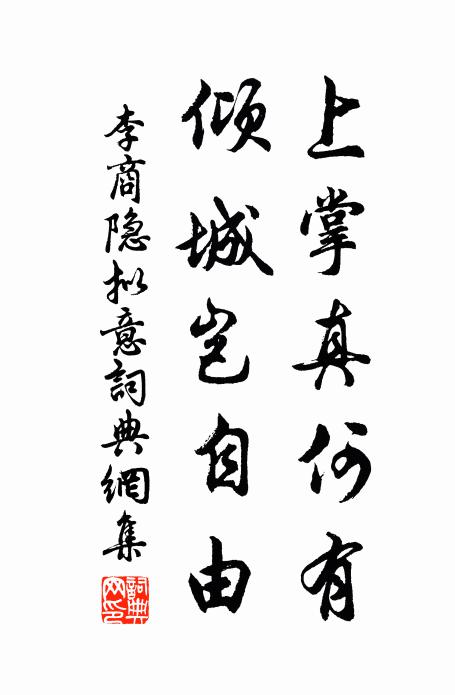 上掌真何有
傾城岂自由
李商隐拟意詞典網集
詞典網印